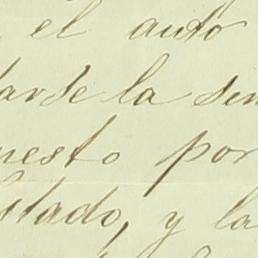 el auto
darse la sen
uesto por
stado, y la